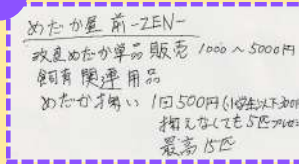 めだか屋 前-ZEN-
改良めだか単品販売 1000～5000円
飼育関連用品
めだか掬い 1回500円(小学生以下300円
掬えなくても5匹プレゼ
最高15匹